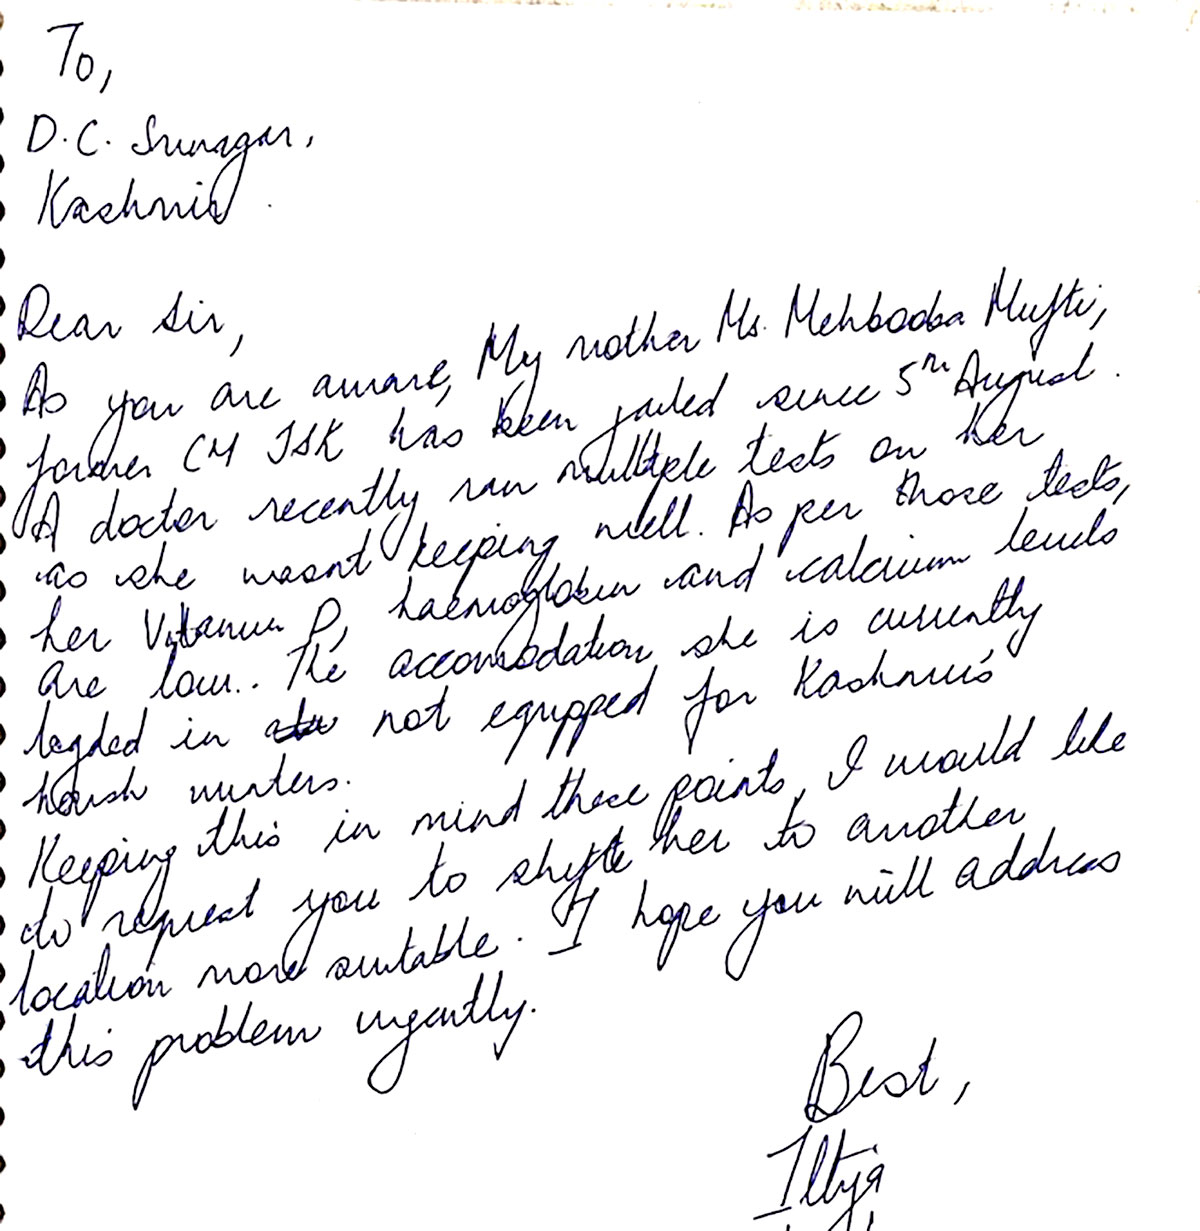 To,
D.C. Srinagar,
Kashmir.
Dear Sir,
As you are aware, My mother Ms. Mehbooba Mufti,
former CM J&K has been jailed since 5th August.
A doctor recently ran multiple tests on her
as she wasnt keeping well. As per those tests,
her Vitamin D, haemoglobin and calcium levels
are low.. The accomodation she is currently
logded in not equipped for Kashmir's
harsh winters.
Keeping this in mind these points, I would like
to request you to shift her to another
location more suitable. I hope you will address
this problem urgently.
Best,
Iltija